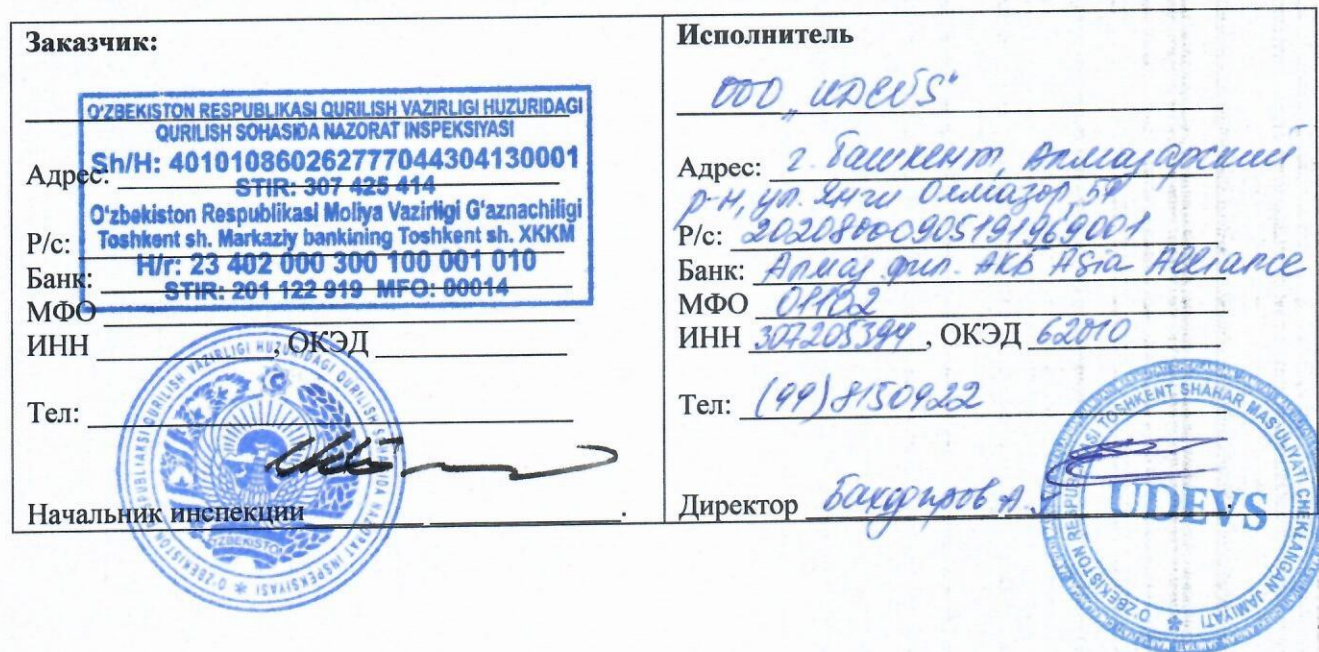 Заказчик:
O'ZBEKISTON RESPUBLIKASI QURILISH VAZIRLIGI HUZURIDAGI
QURILISH SOHASIDA NAZORAT INSPEKSIYASI
Sh/H: 401010860262777044304130001
STIR: 307 425 414
O'zbekiston Respublikasi Moliya Vazirligi G'aznachiligi
Toshkent sh. Markaziy bankining Toshkent sh. XKKM
H/r: 23 402 000 300 100 001 010
STIR: 201 122 919 MFO: 00014
Адрес:
Р/с:
Банк:
МФО
ИНН , ОКЭД
Тел:
Начальник инспекции .
O'ZBEKISTON
Исполнитель
ООО „UDEVS"
Адрес: г. Ташкент, Алмазарский
р-н, ул. Янги Олмазор, 51
Р/с: 20208000905191969001
Банк: Алмаз. фил. АКБ Asia Alliance
МФО 01102
ИНН 307205394, ОКЭД 62010
Тел: (99) 8150922
Директор Баходиров А.
O'ZBEKISTON RESPUBLIKASI TOSHKENT SHAHAR MAS'ULIYATI CHEKLANGAN JAMIYATI
UDEVS